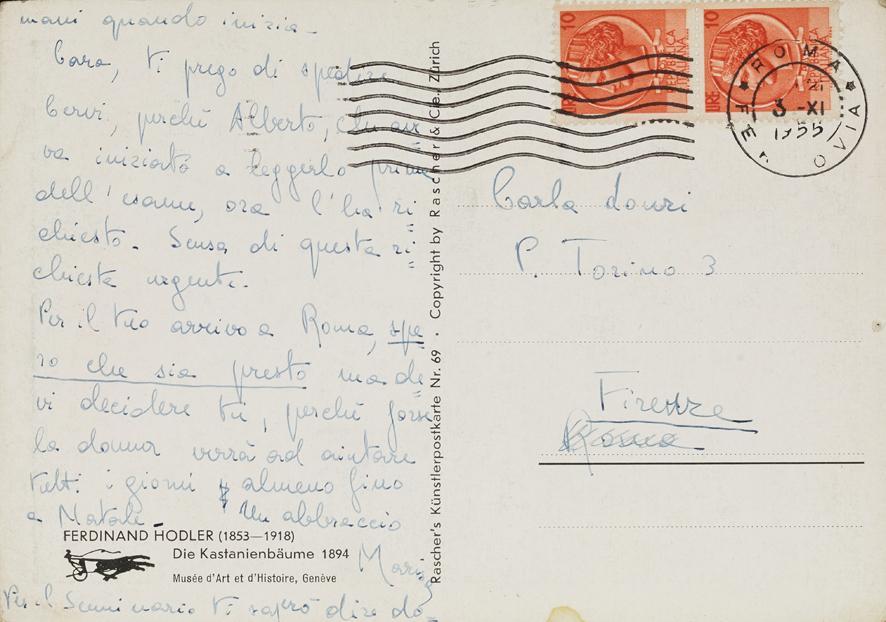 mani quando inizia.
Cara, ti prego di spedire
Cervi, perché Alberto, che ave
va iniziato a leggerlo prima
dell'esame, ora l'ha ri
chiesto. Scusa di questa ri
chiesta urgente.
Per il tuo arrivo a Roma, spe
ro che sia presto ma de
vi decidere tu, perché forse
la donna verrà ad aiutare
tutti i giorni almeno fino
a Natale. Un abbraccio
Maria
FERDINAND HODLER (1853—1918)
Die Kastanienbäume 1894
Musée d'Art et d'Histoire, Genève
Per il Seminario ti saprò dire do-
Rascher's Künstlerpostkarte Nr. 69 · Copyright by Rascher & Cie., Zürich
10 LIRE
REPUBBLICA ITALIANA
10 LIRE
REPUBBLICA ITALIANA
ROMA
3-XI
1955
FERROVIA
Carla
P. Torino 3
Firenze
Roma